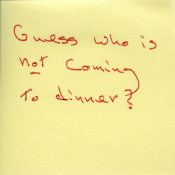 Guess who is
not coming
to dinner?